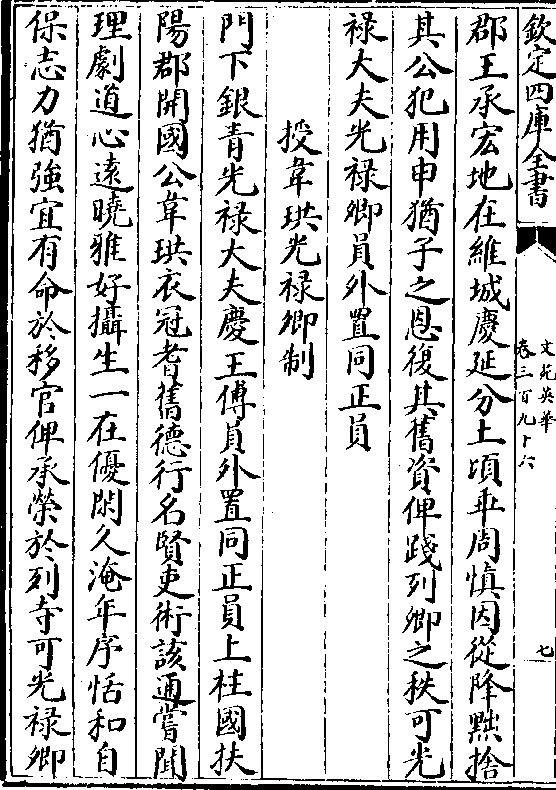 欽定四庫全書
文苑英華
卷三百九十六
七
郡王承宏地在維城慶延分土頃乖周慎因從降黜捨
其公犯用申猶子之恩復其舊資俾踐列卿之秩可光
祿大夫光祿卿員外置同正員
授韋珙光祿卿制
門下銀青光祿大夫慶王傅員外置同正員上柱國扶
陽郡開國公韋珙衣冠耆舊德行名賢吏術該通嘗聞
理劇道心遠曉雅好攝生一在優閑久淹年序恬和自
保志力猶強宜有命於移官俾承榮於列寺可光祿卿